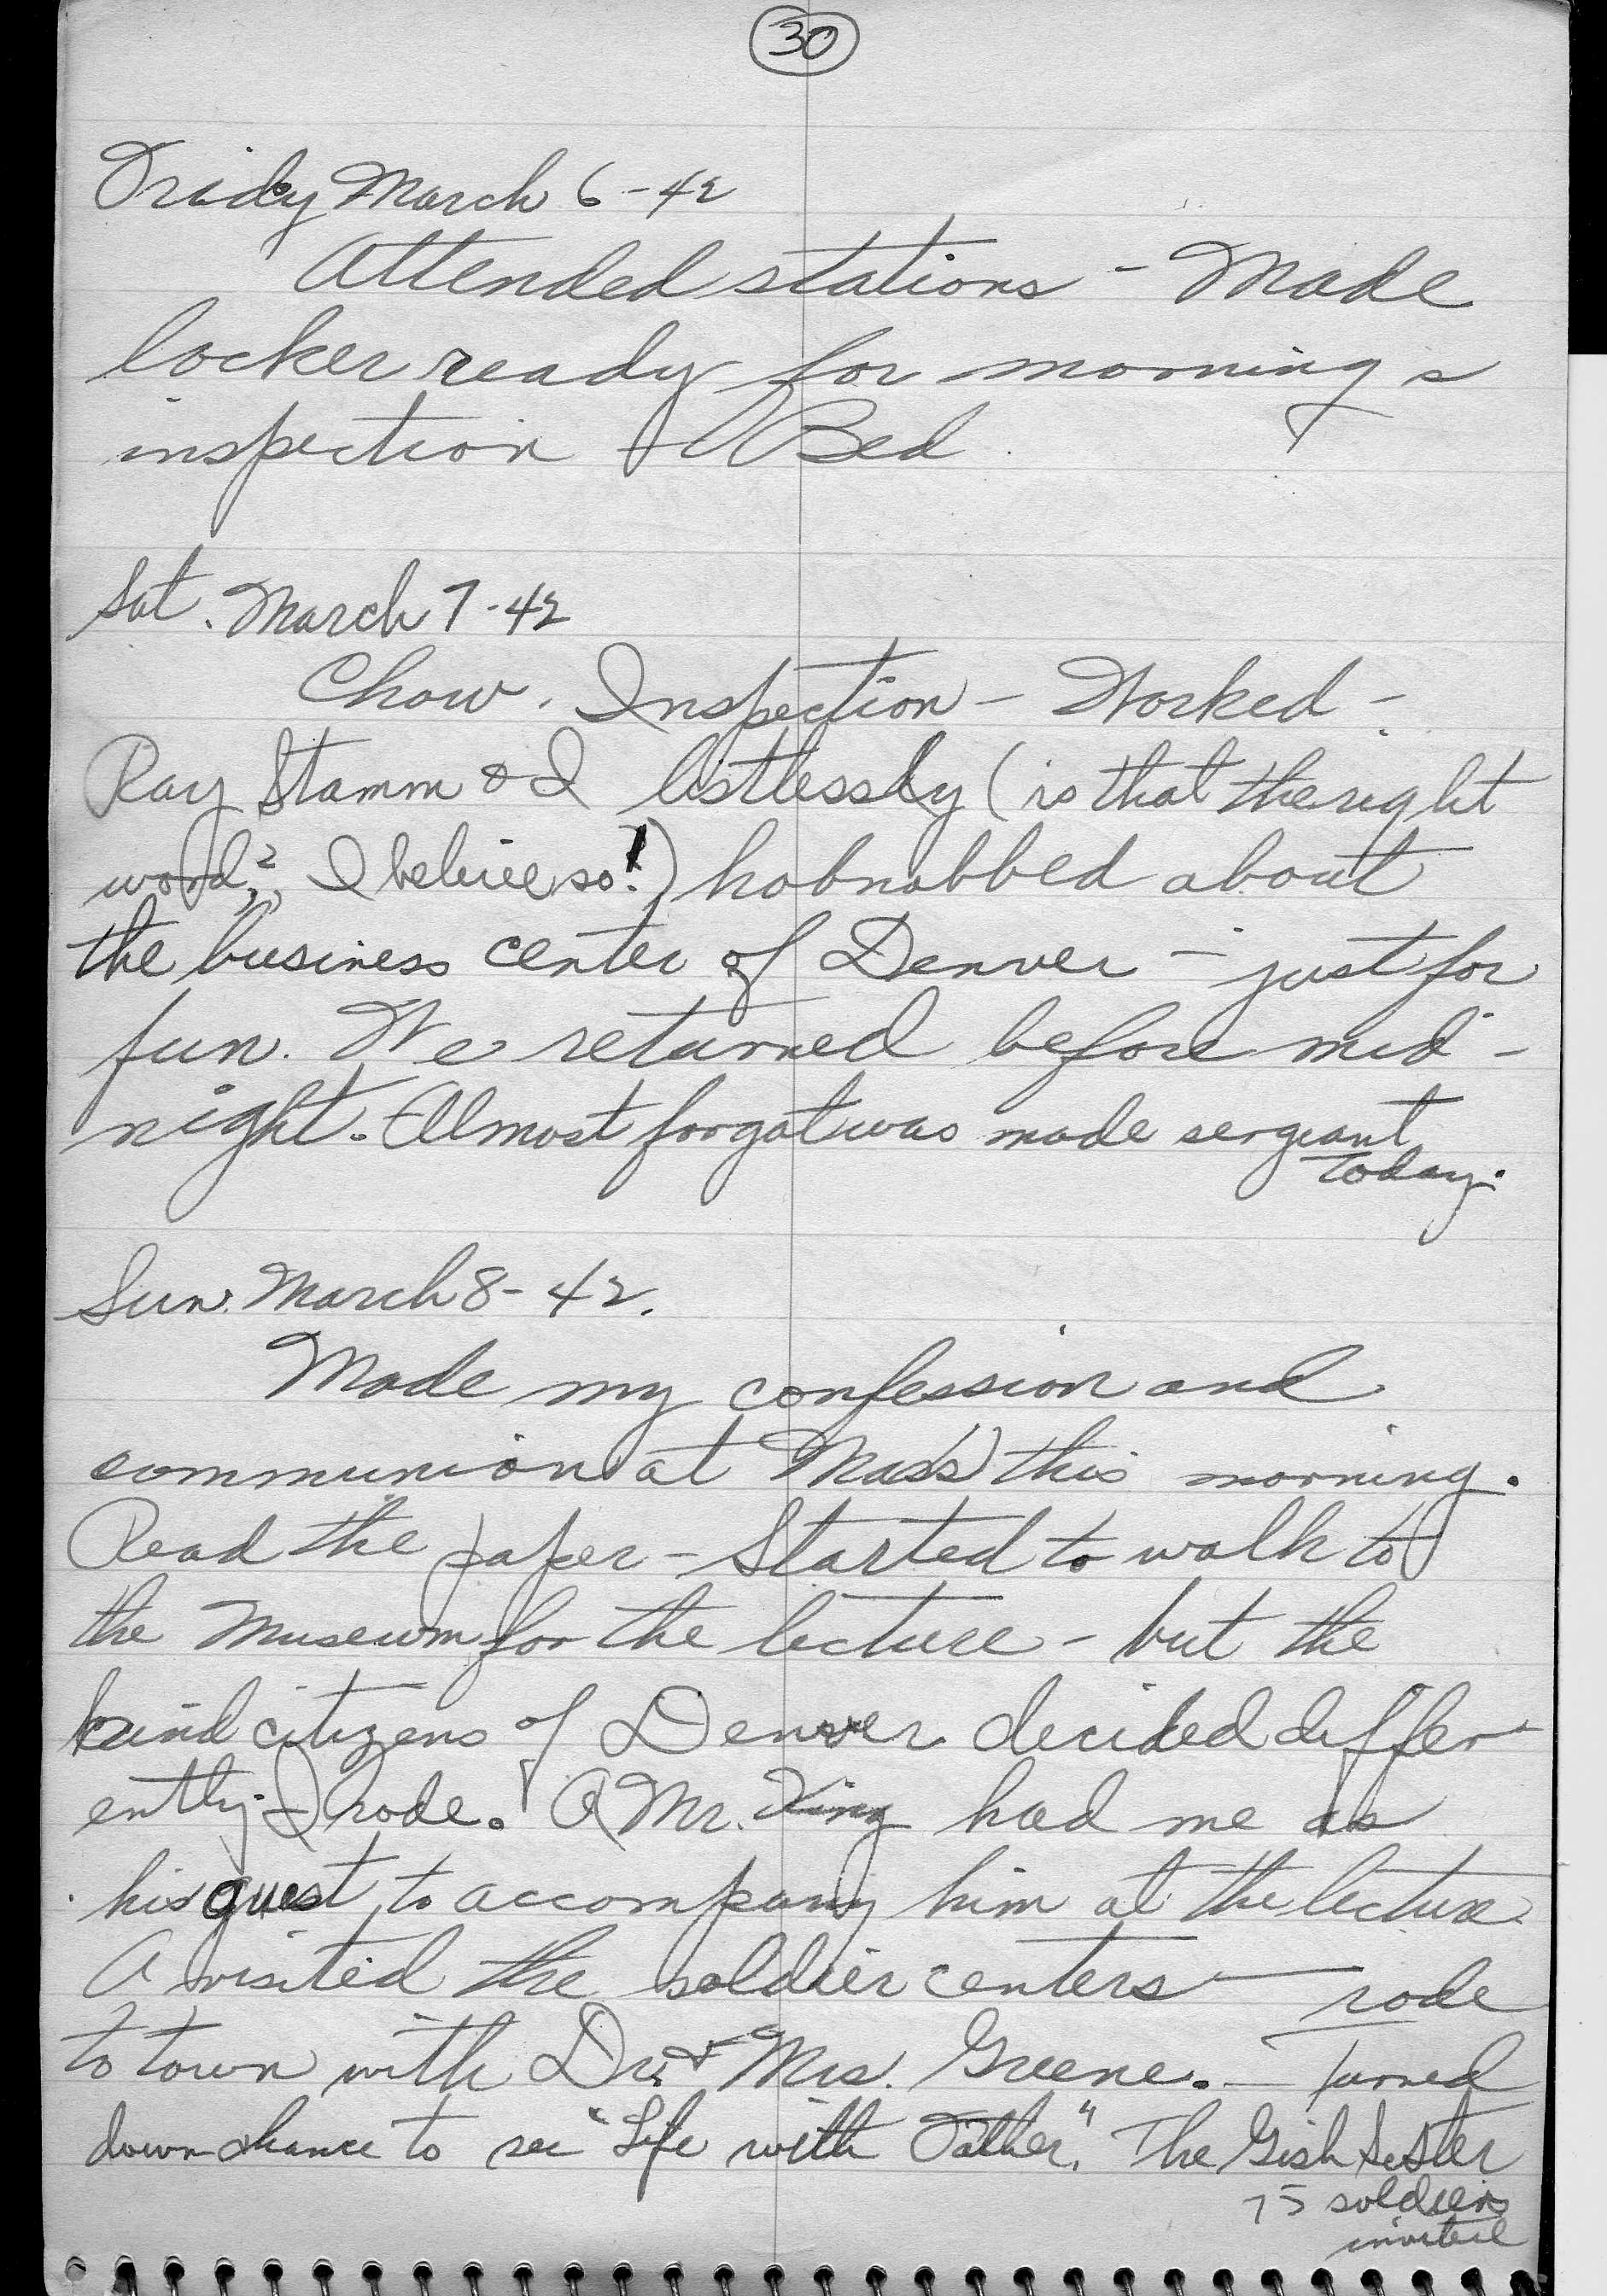 30
Friday March 6-42
Attended stations - Made
locker ready for morning's
inspection & Bed.
Sat. March 7-42
Chow. Inspection - Worked -
Ray Stamm & I listlessly (is that the right
word? I believe so!) hobnobbed about
the business center of Denver - just for
fun. We returned before mid-
night. Almost forgot was made sergeant
today.
Sun. March 8-42.
Made my confession and
communion at Mass this morning.
Read the paper - Started to walk to
the Museum for the lecture - but the
kind citizens of Denver decided differ-
ently. I rode. A Mr. King had me as
his guest to accompany him at the lecture.
A visited the soldier centers — rode
to town with Dr. & Mrs. Greene. - Turned
down chance to see "Life with Father". The Gish Sister
75 soldiers
invited